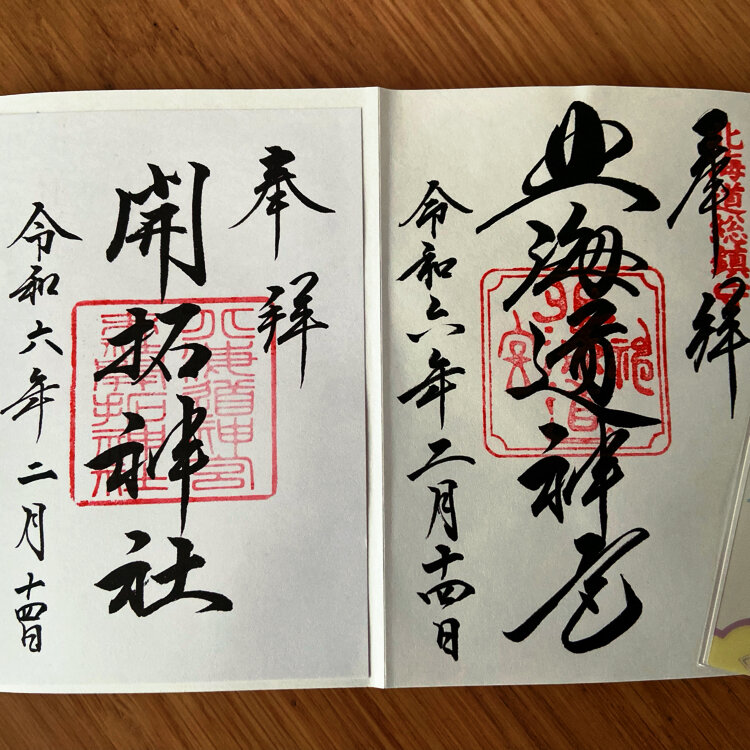 北海道総鎮守
奉拝
北海道神宮
令和六年二月十四日
奉拝
開拓神社
令和六年二月十四日
北海道神宮
開拓神社